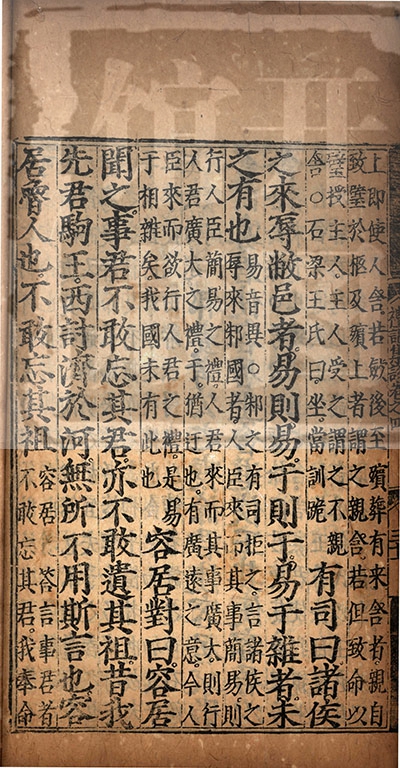 上即使人含若斂後至殯葬有来含者親自
致璧於柩及殯上者謂之親含若但致命以
璧授主人主人受之謂之不親
含○石梁王氏曰坐當訓跪
有司曰諸侯
之來辱敝邑者易則易于則于易于雜者未
之有也
易音異○邾之有司拒之言諸侯之
辱來邾國者人臣來而其事簡易則
行人臣簡易之禮人君來而其事廣大則行
人君廣大之禮于猶迂也有廣遠之意今人
臣來而欲行人君之禮是易
于相雜矣我國未有此也
容居對曰容居
聞之事君不敢忘其君亦不敢遺其祖昔我
先君駒王西討濟於河無所不用斯言也容
居魯人也不敢忘其祖
容居又答言事君者
不敢忘其君我奉命